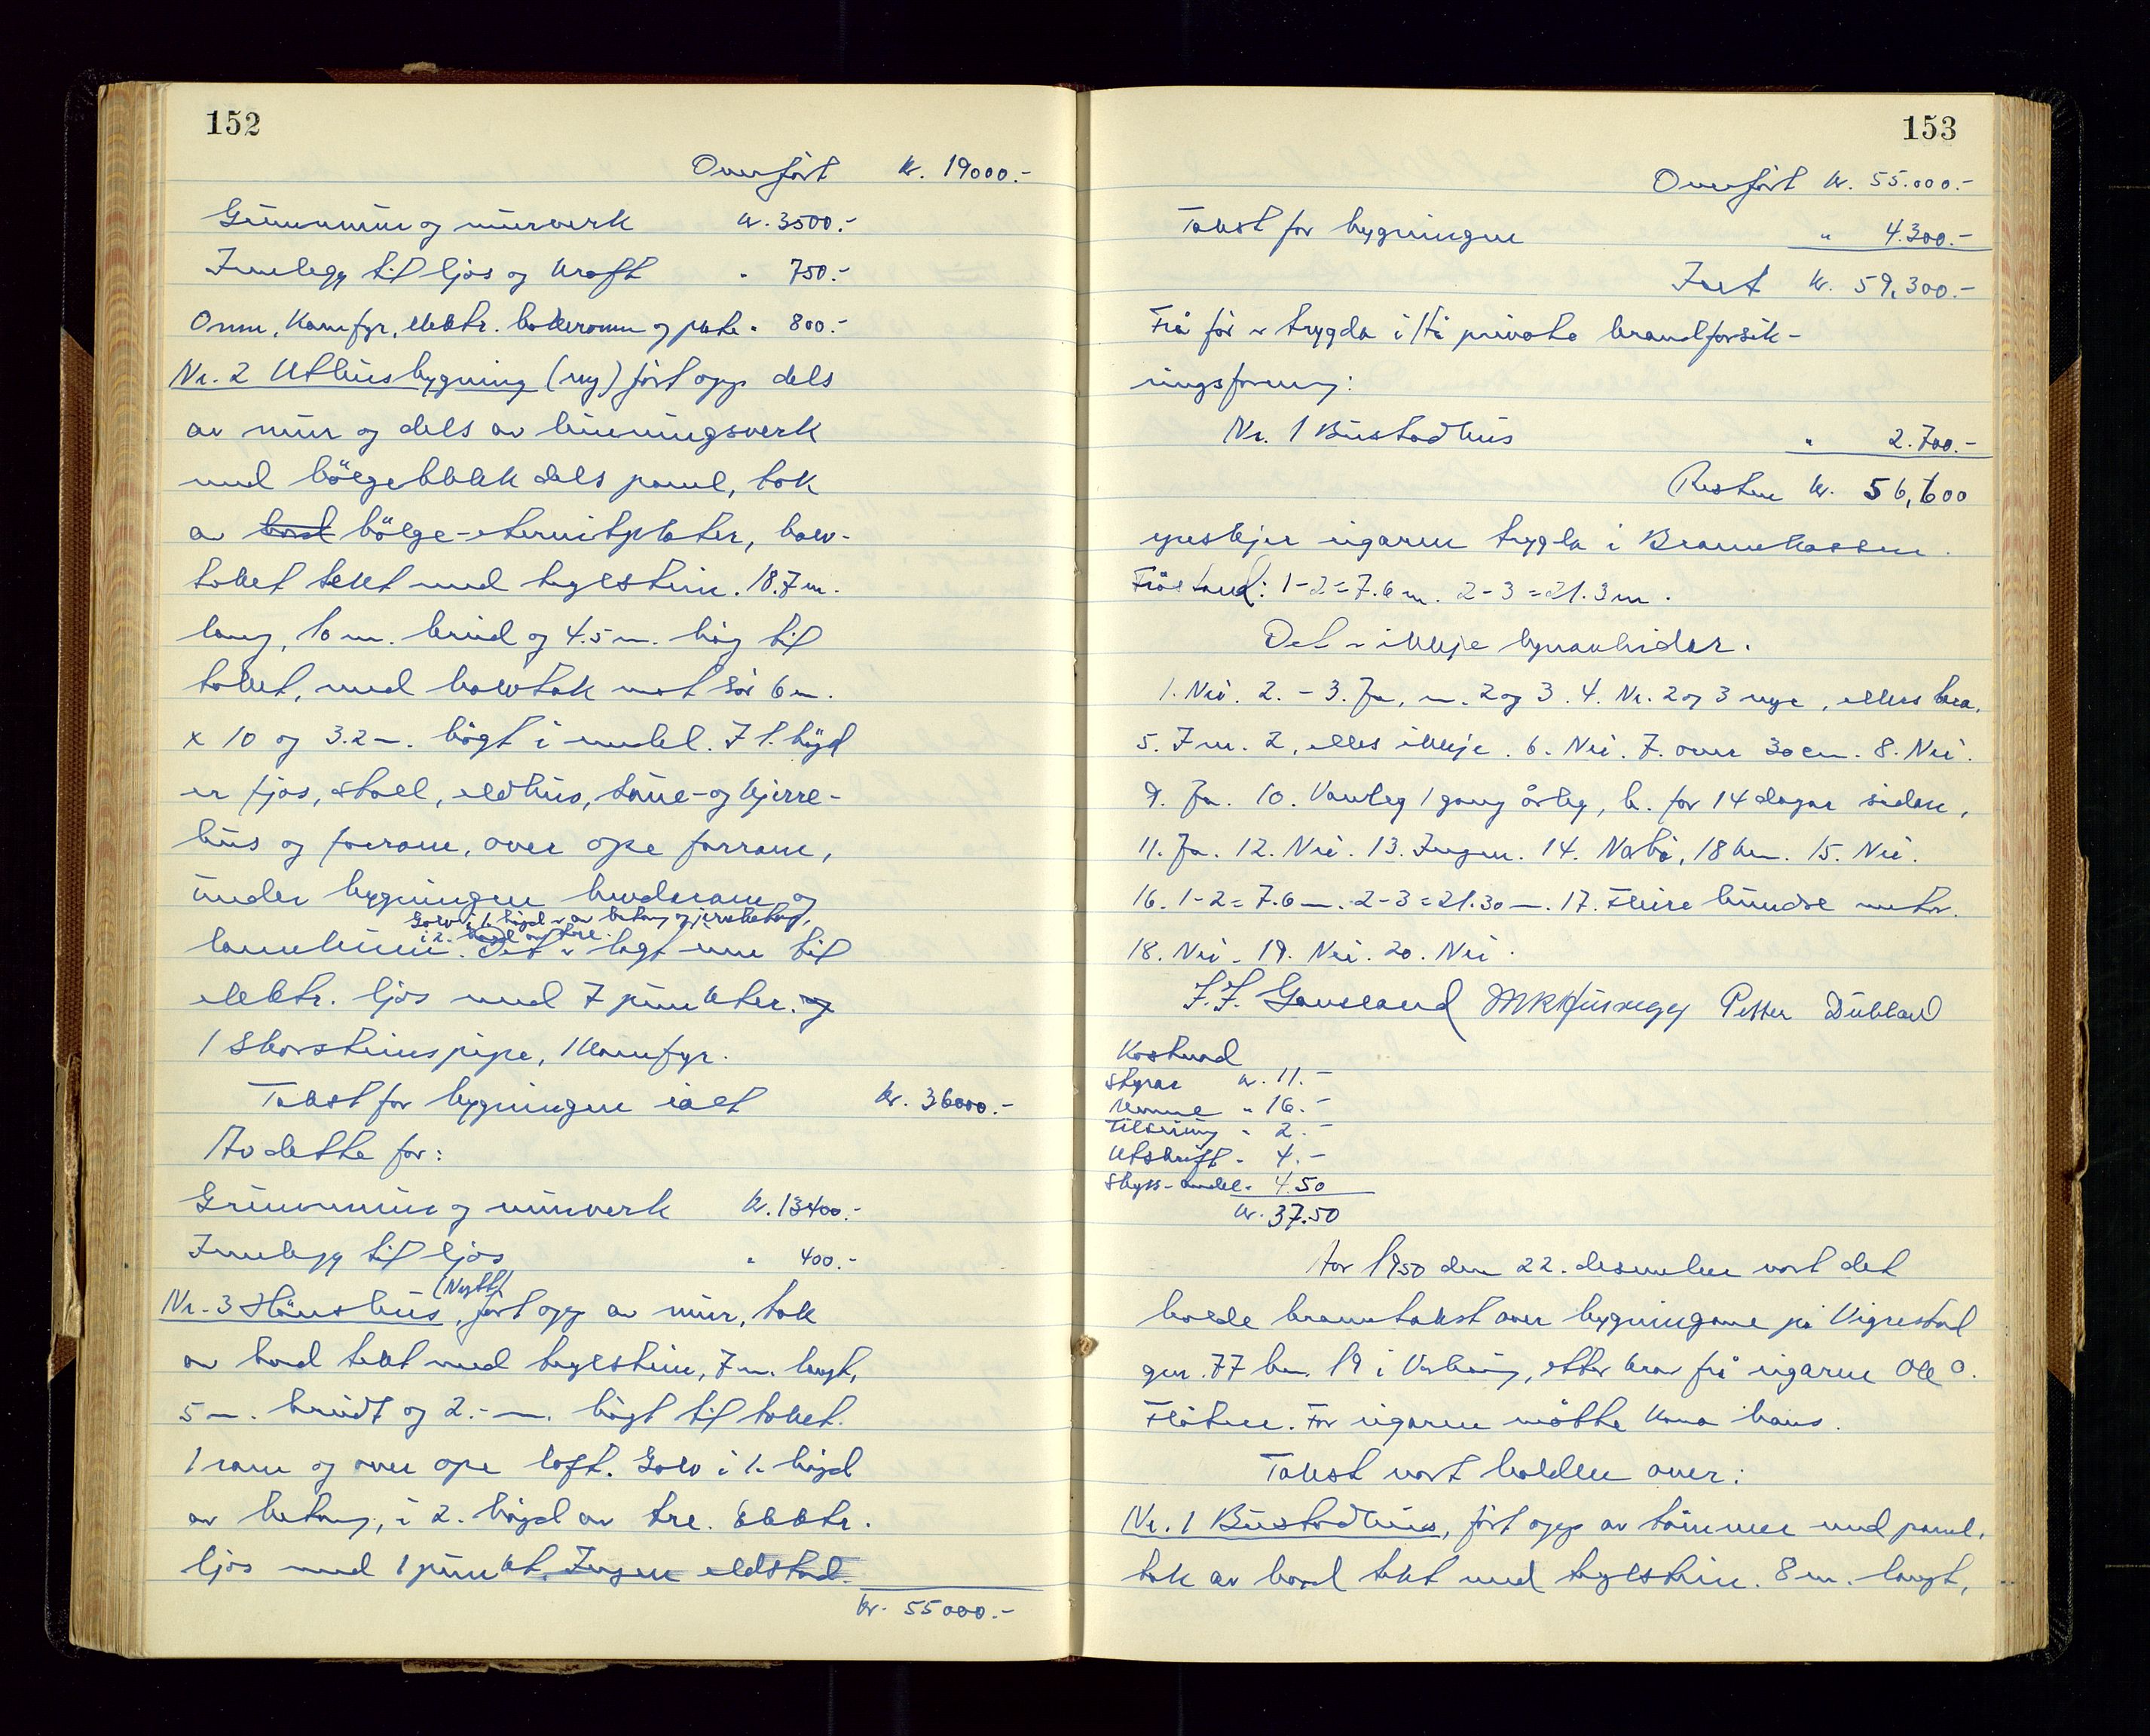 152
Overført kr. 19000.-
Grunnmur og murverk kr. 3500.-
Innlegg til ljos og kraft " 750.-
Omn, komfyr, elektr. bakeromn og plate " 800.-
Nr. 2 Uthusbygning (ny) ført opp dels
av mur og dels av binningsverk
med bölgeblikk dels panel, tak
av bord bölge-eternitplater, halv-
taket tekt med teglstein. 18.7 m.
lang, 10 m. breid og 4.5 m. høg til
taket, med halvtak mot sør 6 m.
x 10 og 3.2 m. høgt i medel. I 1. høgd
er fjos, stall, eldhus, tørue- og kjerre-
hus og forrom, over ope forrom,
under bygningen landkum og
Golv i 1. høgd er av betong og jernbetong,
i 2. høgd av tre.
landkum. Det er lagt inn til
elektr. ljos med 7 punkter. og
1 skorsteinspipe, 1 komfyr.
Takst for bygningen ialt kr. 36000.-
Av dette for:
Grunnmur og murverk kr. 13400.-
Innlegg til ljos " 400.-
(Nytt)
Nr. 3 Hønsehus, ført opp av mur, tak
av bord tekt med teglstein, 7 m. langt,
5 m. breidt og 2.- m. høgt til taket.
1 rom og over ope loft. Golv i 1. høgd
av betong, i 2. høgd av tre. Elektr.
ljos med 1 punkt. Ingen eldstad.
kr. 55000.-
153
Overført kr. 55.000.-
Takst for bygningen " 4.300.-
Ialt kr. 59,300.-
Frå før er trygda i private brandforsik-
ringsforening:
Nr. 1 Bustadhus " 2.700.-
Resten kr. 56,600
ynskjer eigaren trygda i Brannkassen.
Fråstand: 1-2=7.6 m. 2-3=21.3 m.
Det er ikkje bynaboidar.
1. Nei. 2. - 3. Ja, nr. 2 og 3. 4. Nr. 2 og 3 nye, elles bra.
5. I nr. 2, elles ikkje. 6. Nei. 7. over 30 cm. 8. Nei.
9. Ja. 10. Vanleg 1 gang årleg, h. for 14 dagar sidan,
11. Ja. 12. Nei. 13. Ingen. 14. Nærbø, 18 km. 15. Nei.
16. 1-2=7.6 m. 2-3=21.30 m. 17. Fleire hundre meter.
18. Nei. 19. Nei. 20. Nei.
J. J. Gausland Petter Dubland
Kostnad
Styrar kr. 11.-
Menne " 16.-
Tilsening " 2.-
Utskrift " 4.-
Skyss-andel " 4.50
kr. 37.50
Aar 1950 den 22. desember vart det
halde branntakst over bygningane på Vigrestad
gnr. 77 bnr. 19 i Varhaug, etter krav frå eigaren Ole O.
Fløten. For eigaren møtte kona hans.
Takst vart halden over:
Nr. 1 Bustadhus, ført opp av tømmer med panel,
tak av bord tekt med teglstein. 8 m. langt,